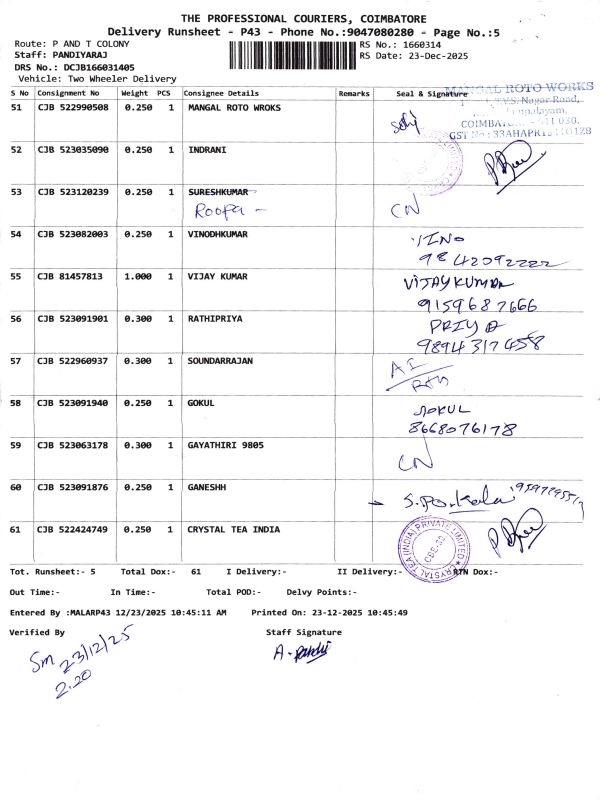 THE PROFESSIONAL COURIERS, COIMBATORE
Delivery Runsheet - P43 - Phone No.:9047080280 - Page No.:5
Route: P AND T COLONY RS No.: 1660314
Staff: PANDIYARAJ RS Date: 23-Dec-2025
DRS No.: DCJB166031405
Vehicle: Two Wheeler Delivery
S No Consignment No Weight PCS Consignee Details Remarks Seal & Signature
MANGAL ROTO WORKS
51 CJB 522990508 0.250 1 MANGAL ROTO WROKS
Nagar Road,
COIMBA
GST No: 33AHAPK
52 CJB 523035090 0.250 1 INDRANI
53 CJB 523120239 0.250 1 SURESHKUMAR
Roopa - CN
54 CJB 523082003 0.250 1 VINODHKUMAR VINO
9842092222
55 CJB 81457813 1.000 1 VIJAY KUMAR VIJAYKUMAR
9159687666
56 CJB 523091901 0.300 1 RATHIPRIYA PRIYA
9894317458
57 CJB 522960937 0.300 1 SOUNDARRAJAN
58 CJB 523091940 0.250 1 GOKUL GOKUL
8668076178
59 CJB 523063178 0.300 1 GAYATHIRI 9805 CN
60 CJB 523091876 0.250 1 GANESHH S.Po.Kala
61 CJB 522424749 0.250 1 CRYSTAL TEA INDIA
CRYSTAL TEA (INDIA) PRIVATE LIMITED
Tot. Runsheet:- 5 Total Dox:- 61 I Delivery:- II Delivery:- RTN Dox:-
Out Time:- In Time:- Total POD:- Delvy Points:-
Entered By :MALARP43 12/23/2025 10:45:11 AM Printed On: 23-12-2025 10:45:49
Verified By Staff Signature
Sm 23/12/25
2.20